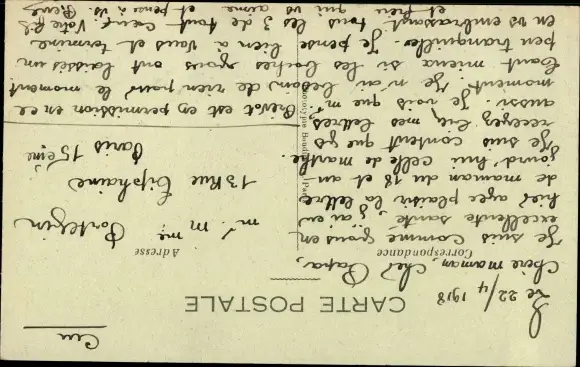 CARTE POSTALE
Le 22/4 1918
Correspondance
Adresse
Chère maman, cher Papa,
Je suis comme vous en
excellente santé, j'ai eu
hier avec plaisir la lettre
de maman du 18 et au-
jourd'hui celle de Marthe.
Je suis content que vs
recevez bien mes lettres
aussi. Je vois que m'
Brévot est en permission en ce
moment. Je n'ai besoin de rien pour le moment
tant mieux si les boches vous ont laissés un
peu tranquilles. Je pense bien à vous et termine
en vs embrassant tous les 3 de tout cœur. Votre fils
et frère qui vs aime et pense à vs.
m. m me
13 Rue Tiphaine
Paris 15eme